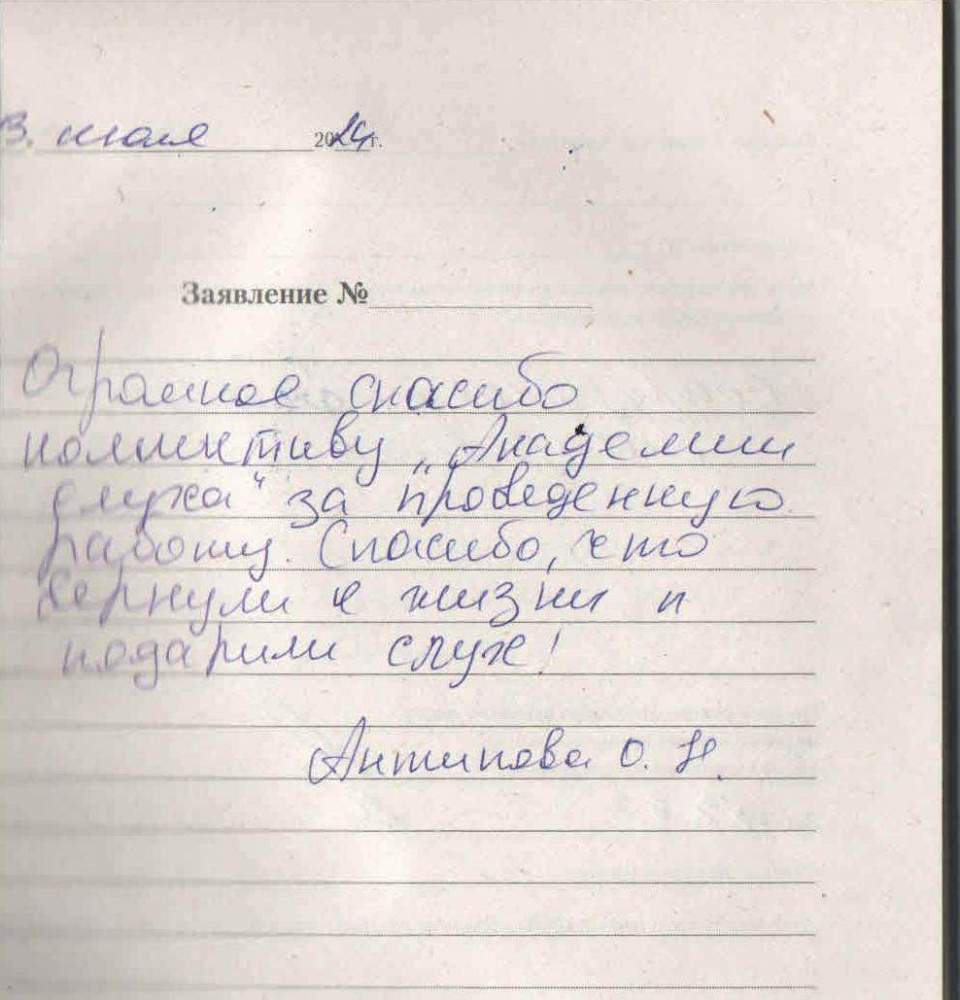 3. июля 2024 г.
Заявление №
Огромное спасибо
коллективу „Академии
слуха“ за проведенную
работу. Спасибо, что
вернули к жизни и
подарили слух!
Антипова О. Н.